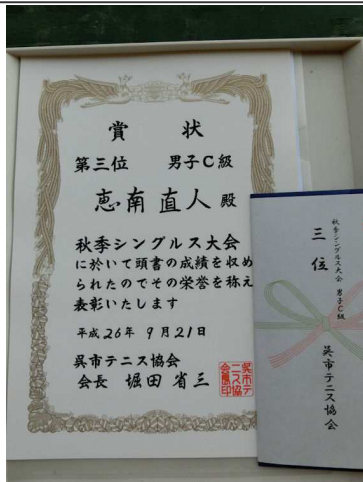 賞状
第三位 男子C級
恵南直人殿
秋季シングルス大会
に於いて頭書の成績を収め
られたのでその栄誉を称え
表彰いたします
平成26年9月21日
呉市テニス協会
会長 堀田省三
呉市テ
ニス協
会長印
秋季シングルス大会 男子C級
三位
呉市テニス協会